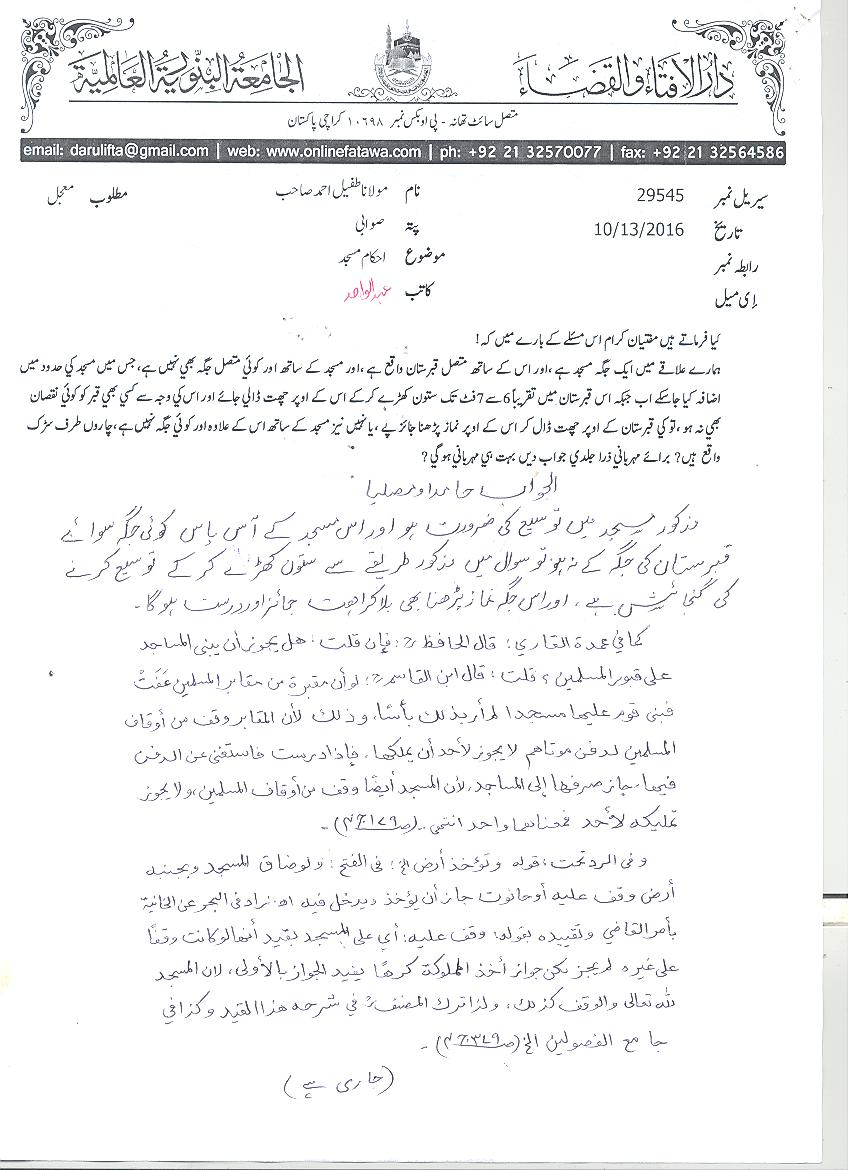 دار الافتاء والقضاء
الجامعۃ البنوریۃ العالمیۃ
متصل سائٹ تھانہ - پی او بکس نمبر ۱۰۶۹۸ کراچی پاکستان
email: darulifta@gmail.com | web: www.onlinefatawa.com | ph: +92 21 32570077 | fax: +92 21 32564586
سیریل نمبر 29545 نام مولانا طفیل احمد صاحب مطلوب معجل
تاریخ 10/13/2016 پتہ صوابی
رابطہ نمبر موضوع احکام مسجد
ای میل کاتب عبدالواحد
کیا فرماتے ہیں مفتیان کرام اس مسئلے کے بارے میں کہ!
ہمارے علاقے میں ایک جگہ مسجد ہے، اور اس کے ساتھ متصل قبرستان واقع ہے، اور مسجد کے ساتھ اور کوئی متصل جگہ بھی نہیں ہے، جس میں مسجد کی حدود میں
اضافہ کیا جاسکے اب جبکہ اس قبرستان میں تقریباً 6 سے 7 فٹ تک ستون کھڑے کرکے اس کے اوپر چھت ڈالی جائے اور اس کی وجہ سے کسی بھی قبر کو کوئی نقصان
بھی نہ ہو، تو کی قبرستان کے اوپر چھت ڈال کر اس کے اوپر نماز پڑھنا جائز ہے، یا نہیں نیز مسجد کے ساتھ اس کے علاوہ اور کوئی جگہ نہیں ہے، چاروں طرف سڑک
واقع ہیں؟ برائے مہربانی ذرا جلدی جواب دیں بہت ہی مہربانی ہوگی؟
الجواب حامدا ومصلیا
مذکور مسجد میں توسیع کی ضرورت ہو اور اس مسجد کے آس پاس کوئی جگہ سوائے
قبرستان کی جگہ کے نہ ہو تو سوال میں مذکور طریقے سے ستون کھڑے کر کے توسیع کرنے
کی گنجائش ہے، اور اس جگہ نماز پڑھنا بھی بلا کراہت جائز اور درست ہوگا۔
کما في عمدة القاري: قال الحافظؒ: فإن قلت: هل يجوز أن يبنى المساجد
على قبور المسلمين؟ قلت: قال ابن القاسمؒ: لو أن مقبرة من مقابر المسلمين عَفَتْ
فبنى قوم عليها مسجدا لم أر بذلك بأسًا، وذلك لأن المقابر وقف من أوقاف
المسلمين لدفن موتاهم لا يجوز لأحد أن يملكها، فإذا درست فاستغنى عن الدفن
فيها، جاز صرفها إلى المساجد، لأن المسجد أيضًا وقف من أوقاف المسلمين، ولا يجوز
تمليكه لأحد فمعناهما واحد انتهى۔ (ص۱۷۹ ج۴)۔
وفي الرد تحت: قوله وتؤخذ أرض الخ: في الفتح: ولو ضاق المسجد وبجنبه
أرض وقف عليه أو حانوت جاز أن يؤخذ ويدخل فيه اھ زاد في البحر عن الخانية
بأمر القاضي وتقييده بقوله: وقف عليه: أي على المسجد يفيد أنها لو كانت وقفًا
على غيره لم يجز لكن جواز أخذ المملوكة كرهًا يفيد الجواز بالأولى، لأن المسجد
لله تعالى والوقف كذلك، ولذا ترك المصنفؒ في شرحه هذا القيد وكذا في
جامع الفصولين الخ (ص۳۷۹ ج۴)۔
(جاری ہے)